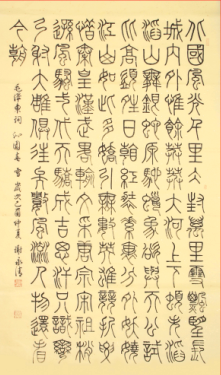 北國風光千里冰封萬里雪飄望長
城内外惟餘莽莽大河上下頓失滔
滔山舞銀蛇原馳蠟象欲與天公試
比高須晴日看紅裝素裹分外妖嬈
江山如此多嬌引無數英雄競折腰
惜秦皇漢武略輸文采唐宗宋祖稍
遜風騷一代天驕成吉思汗只識彎
弓射大雕俱往矣數風流人物還看
今朝
毛澤東詞 沁園春 雪 歲次乙酉仲夏